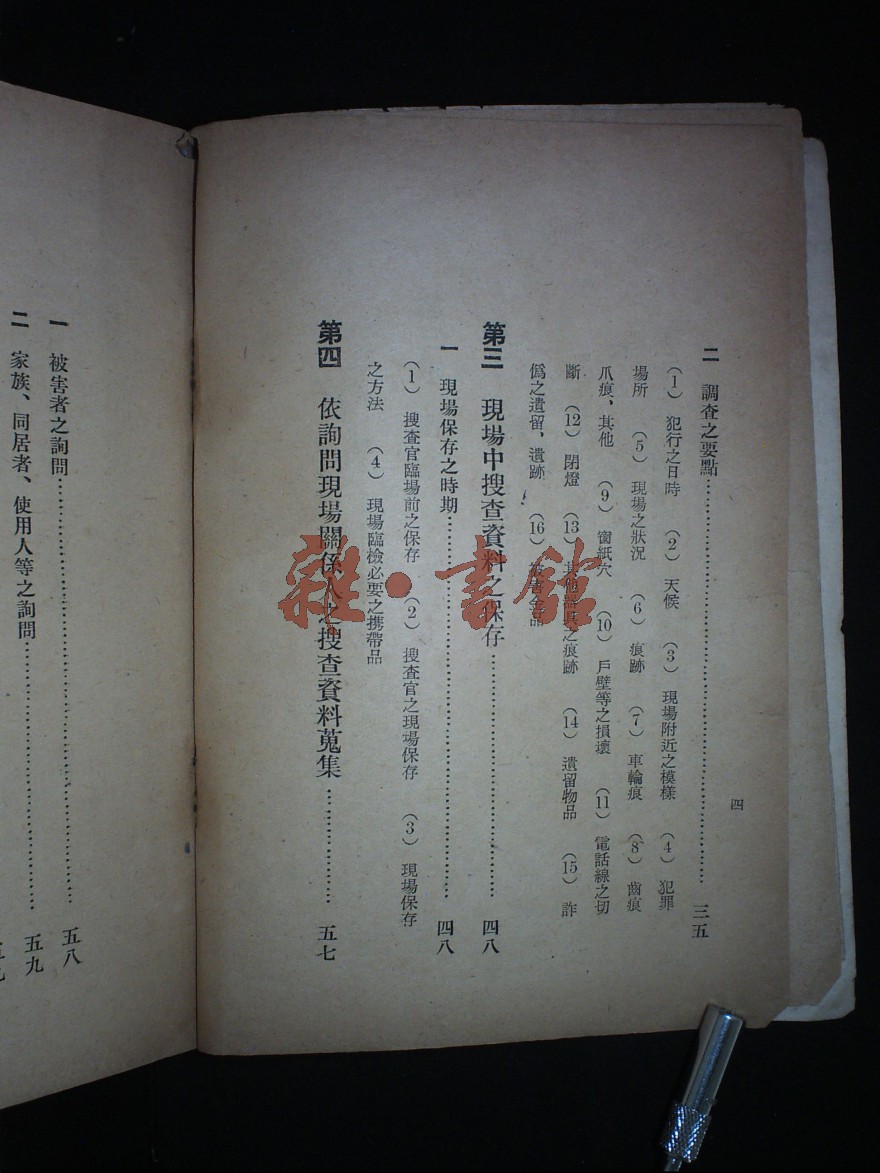 四
二 調查之要點 三五
（1） 犯行之日時 （2） 天候 （3） 現場附近之模樣 （4） 犯罪
場所 （5） 現場之狀況 （6） 痕跡 （7） 車輪痕 （8） 齒痕
爪痕、其他 （9） 窗紙穴 （10） 戶壁等之損壞 （11） 電話線之切
斷 （12） 閉燈 （13） 其他器具之痕跡 （14） 遺留物品 （15） 詐
僞之遺留、遺跡 （16） 被害金品
第三 現場中搜查資料之保存 四八
一 現場保存之時期 四八
（1） 搜查官臨場前之保存 （2） 搜查官之現場保存 （3） 現場保存
之方法 （4） 現場臨檢必要之携帶品
第四 依詢問現場關係人之搜查資料蒐集 五七
一 被害者之詢問 五八
二 家族、同居者、使用人等之詢問 五九
雜·書館